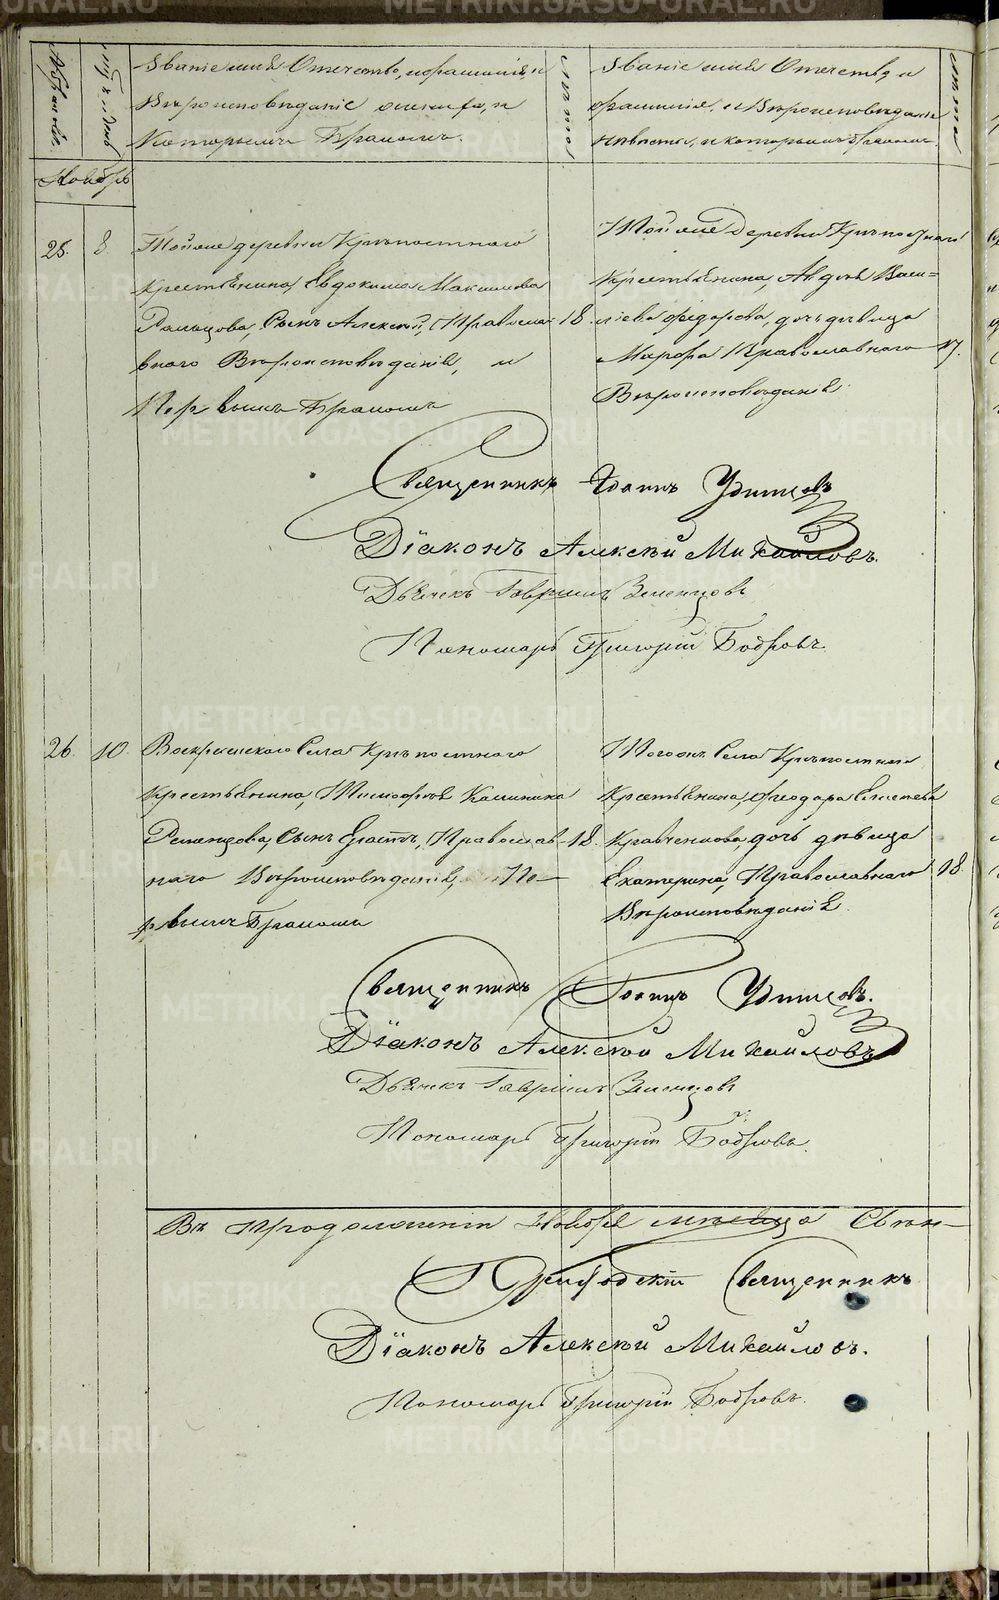 Званіе имя Отчество, и фамилія, и
Вѣроисповѣданіе жениха, и
Которымъ Бракомъ.
лѣта
Званіе имя Отчество, и
фамилія, и Вѣроисповѣданіе
невѣсты, и которымъ бракомъ
лѣта
Ноябрь
25. 8.
Тойже деревни Крѣпостнаго
крестьянина, Евдокима Максимова
сынъ Алексѣй, Православ 18.
наго Вѣроисповѣданія, и
Первымъ Бракомъ
Тойже Деревни Крѣпостнаго
Крестьянина, Васи=
ліева Фёдорова, дочь дѣвица
Марфа Православнаго 17.
Вѣроисповѣданія
Священникъ Іоаннъ Удинцовъ
Діаконъ Алексѣй Михайловъ.
Дьячекъ Гавріилъ Земенцовъ
Пономарь Григорій Бобровъ.
26. 10.
Воскресенскаго Села Крѣпостнаго
крестьянина, Тимофея Калиника
сынъ Православ 18.
наго Вѣроисповѣданія, Пе—
рвымъ Бракомъ
Тогожъ Села Крѣпостнаго
Крестьянина, Феодора
дочь дѣвица
Екатерина, Православнаго 18.
Вѣроисповѣданія.
Священникъ Іоаннъ Удинцовъ.
Діаконъ Алексѣй Михайловъ
Дьячекъ Гавріилъ Земенцовъ
Пономарь Григорій Бобровъ.
Въ Продолженіи Ноября мѣсяца Свѣн—
Священникъ
Діаконъ Алексѣй Михайловъ.
Пономарь Григорій Бобровъ.
METRIKI.GASO-URAL.RU